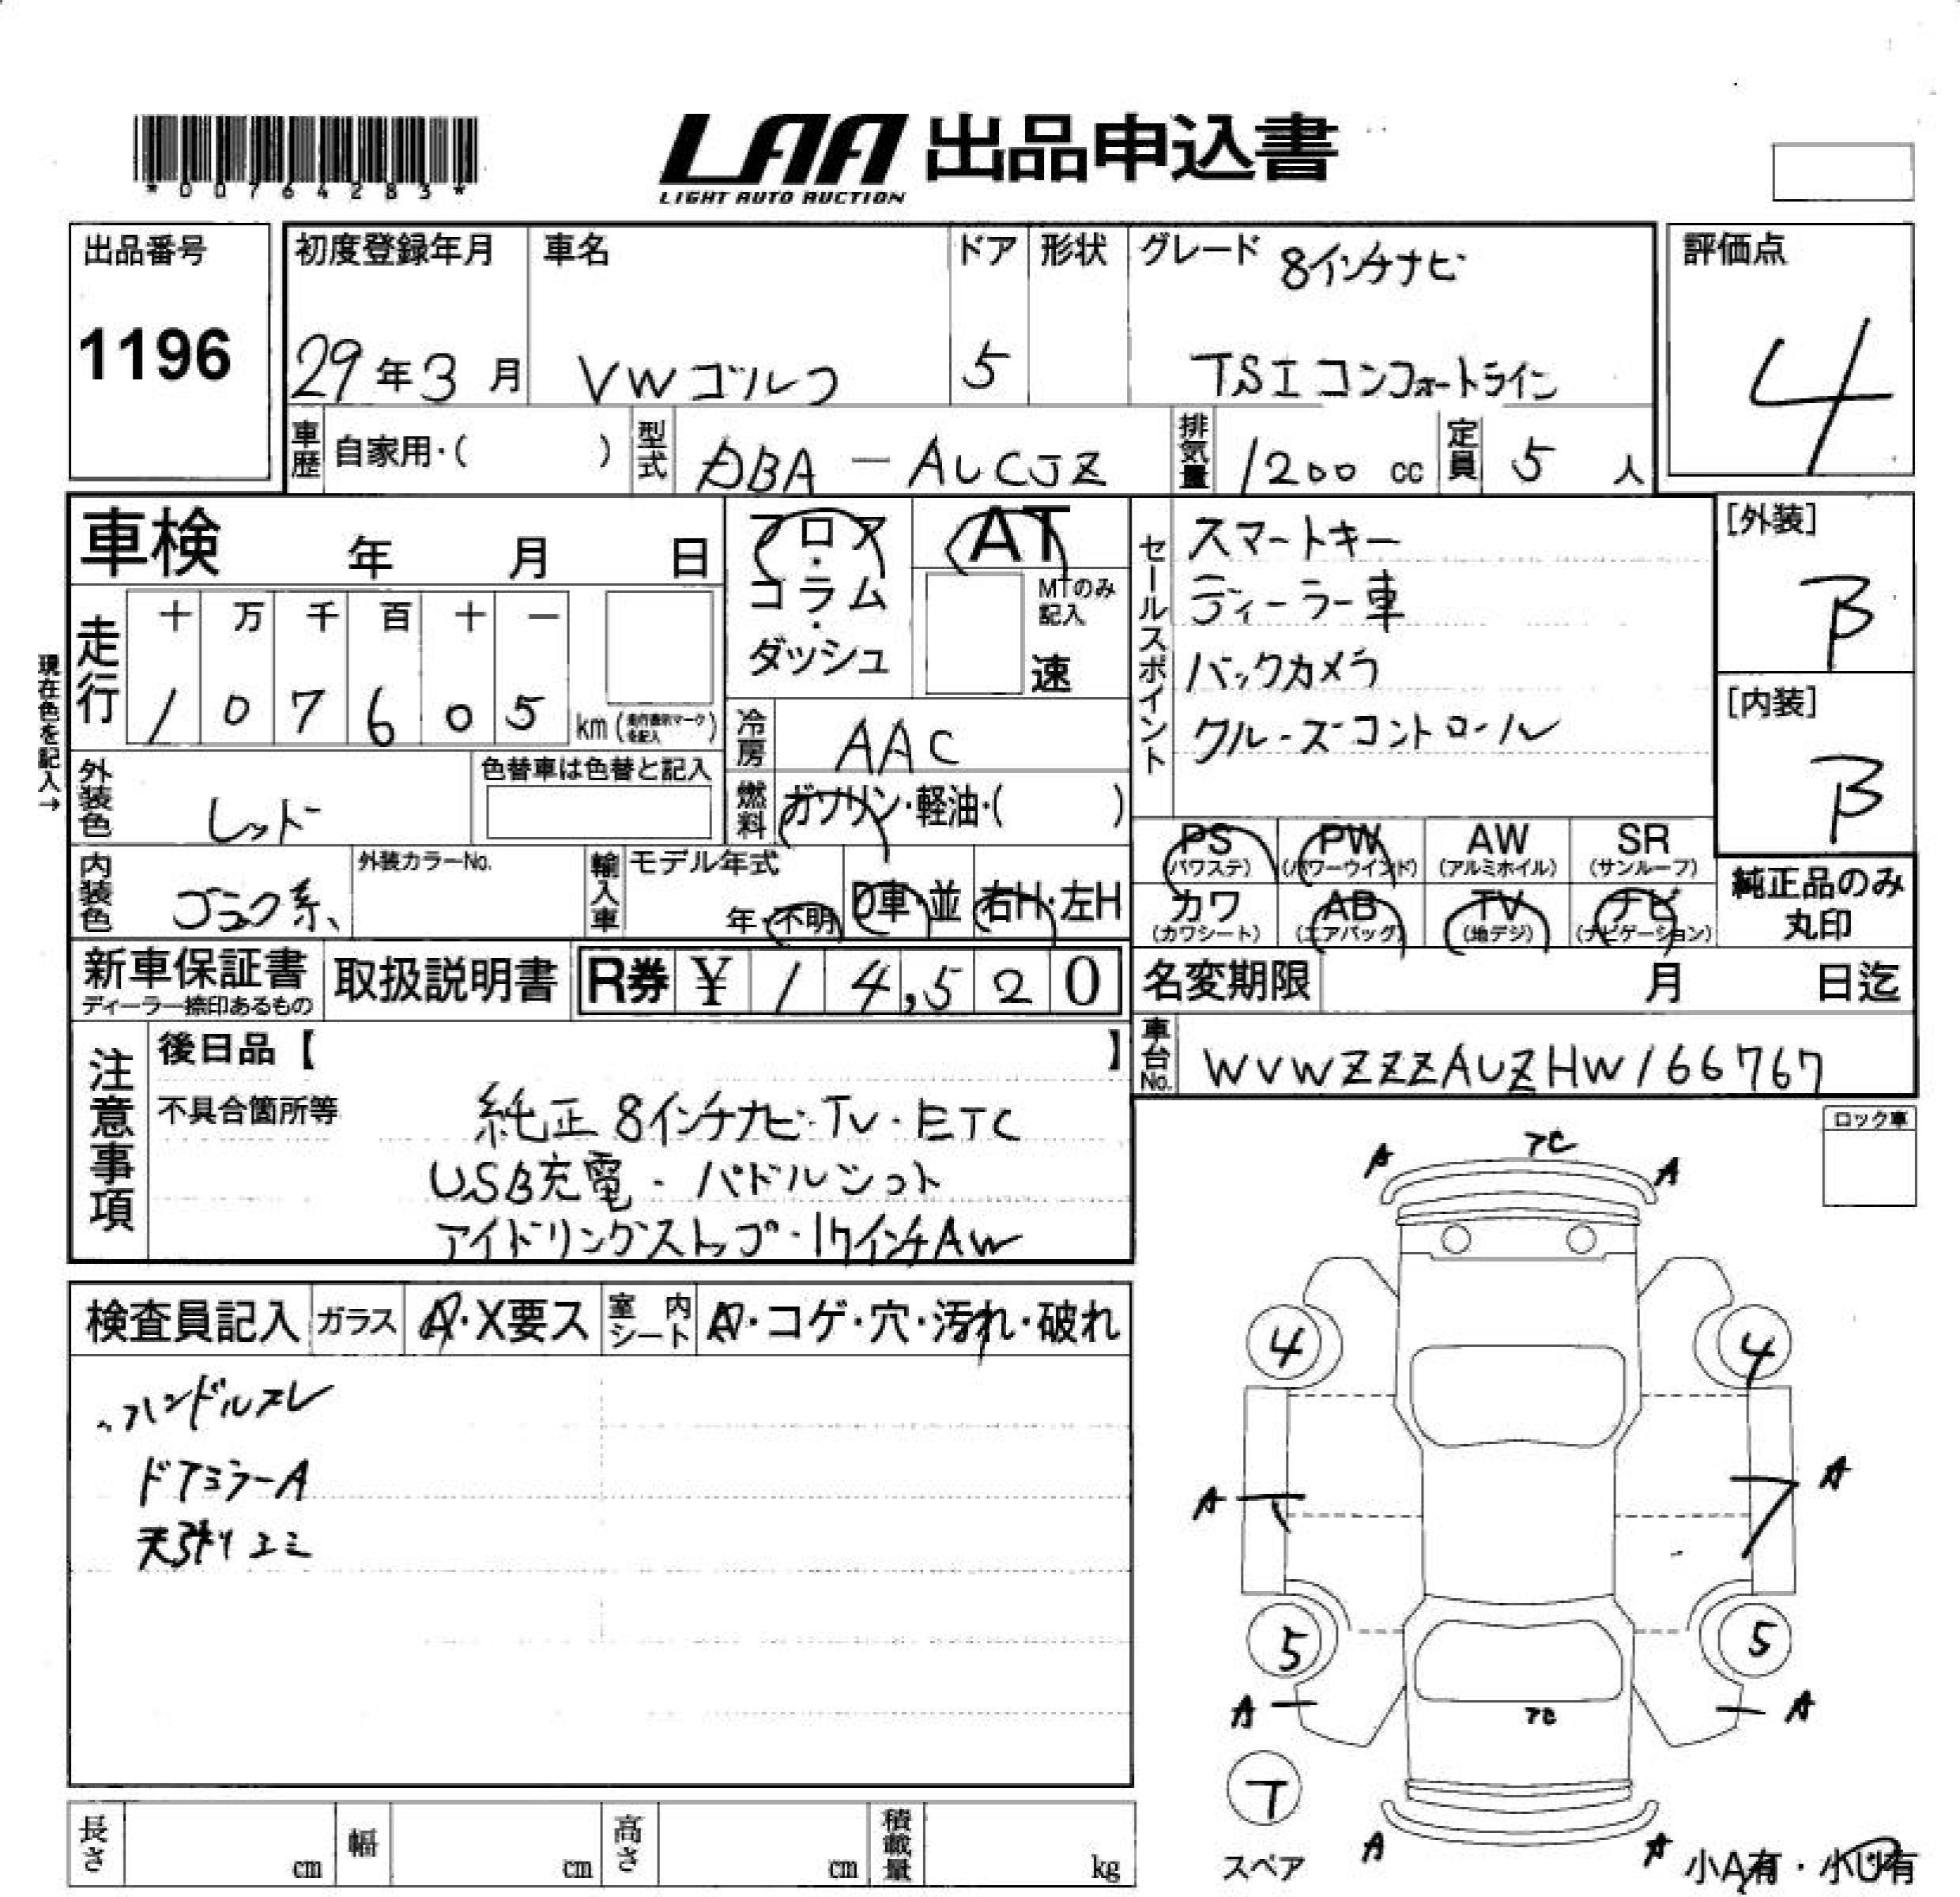 *00764283*
LAA 出品申込書
LIGHT AUTO AUCTION
出品番号
1196
初度登録年月
29年3月
車名
VWゴルフ
ドア
5
形状
グレード 8インチナビ
TSIコンフォートライン
評価点
4
車歴 自家用・( )
型式 DBA-AUCJZ
排気量 1200 cc
定員 5 人
車検 年 月 日
フロア・コラム・ダッシュ
AT
MTのみ記入
速
セールスポイント
スマートキー
ディーラー車
バックカメラ
クルーズコントロール
[外装]
B
[内装]
B
現在色を記入→
走行
十 万 千 百 十 一
1 0 7 6 0 5 km (走行表示マークを記入)
冷房 AAC
外装色 レッド
色替車は色替と記入
燃料 ガソリン・軽油・( )
PS (パワステ)
PW (パワーウインド)
AW (アルミホイル)
SR (サンルーフ)
内装色 ブラック系
外装カラーNo.
輸入車 モデル年式
年・不明 D車・並 右H・左H
カワ (カワシート)
AB (エアバッグ)
TV (地デジ)
ナビ (ナビゲーション)
純正品のみ丸印
新車保証書
ディーラー捺印あるもの
取扱説明書
R券 ¥ 14,520
名変期限 月 日迄
車台No. WVWZZZAUZHW166767
注意事項
後日品【 】
不具合箇所等
純正8インチナビ・TV・ETC
USB充電・パドルシフト
アイドリングストップ・17インチAW
ロック車
検査員記入
ガラス A・X要ス
室内シート A・コゲ・穴・汚れ・破れ
ハンドルスレ
ドアミラーA
天張りシミ
A
A
4
4
A
A
5
5
A
A
T
スペア
A
A
小A有・小U有
長さ cm
幅 cm
高さ cm
積載量 kg